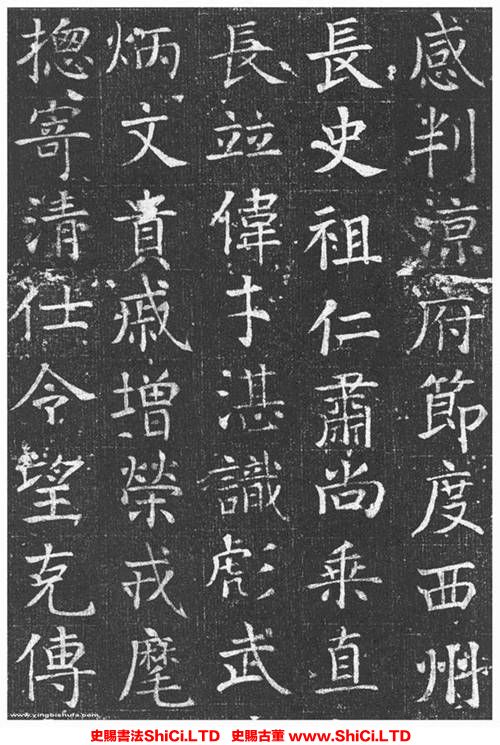 感判涼府節度西州
長史祖仁肅尚乗直
長並偉才湛識彪武
炳文貴戚增榮戎麾
摠寄清任令望克傳
www.yingbishufa.com
史賜書法ShiCi.LTD 史賜古董 www.ShiCi.LTD